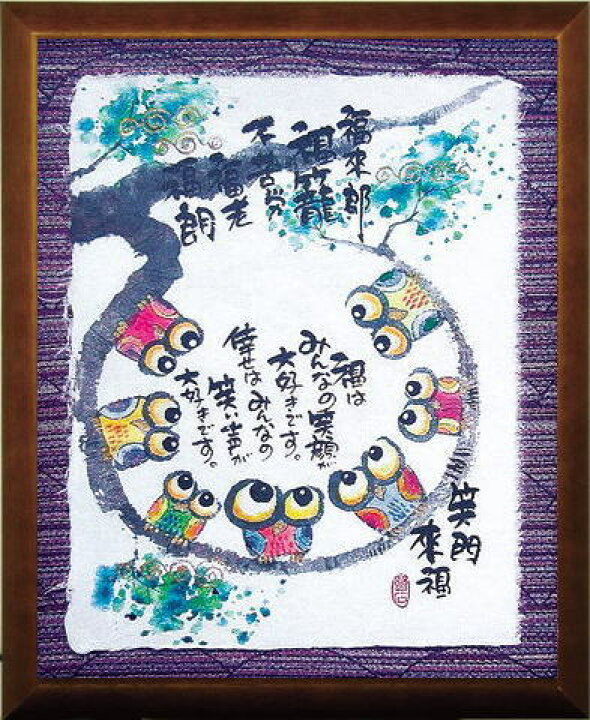 福來郎
福笑龍
不苦労
福老
福朗
福は
みんなの笑顔が
大好きです。
倖せはみんなの
笑い声が
大好きです。
笑門
來福